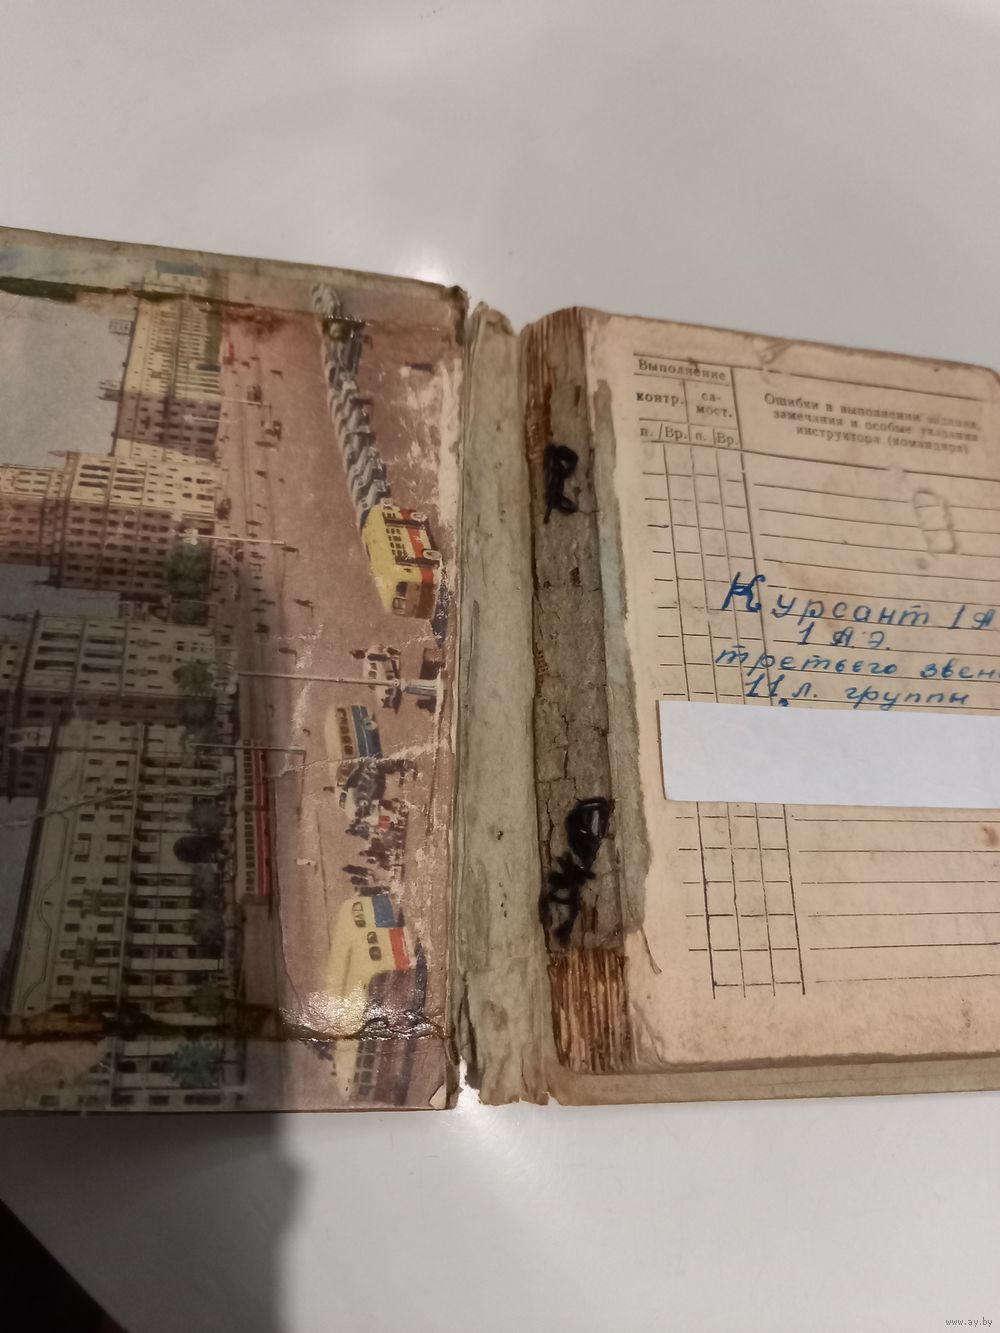 Выполнение
контр.
са-
мост.
п. Вр. п. Вр.
Ошибки в выполнении задания,
замечания и особые указания
инструктора (командира)
Курсант 1 А
1 А.Э.
третьего звен
11 л. группы
www.ay.by